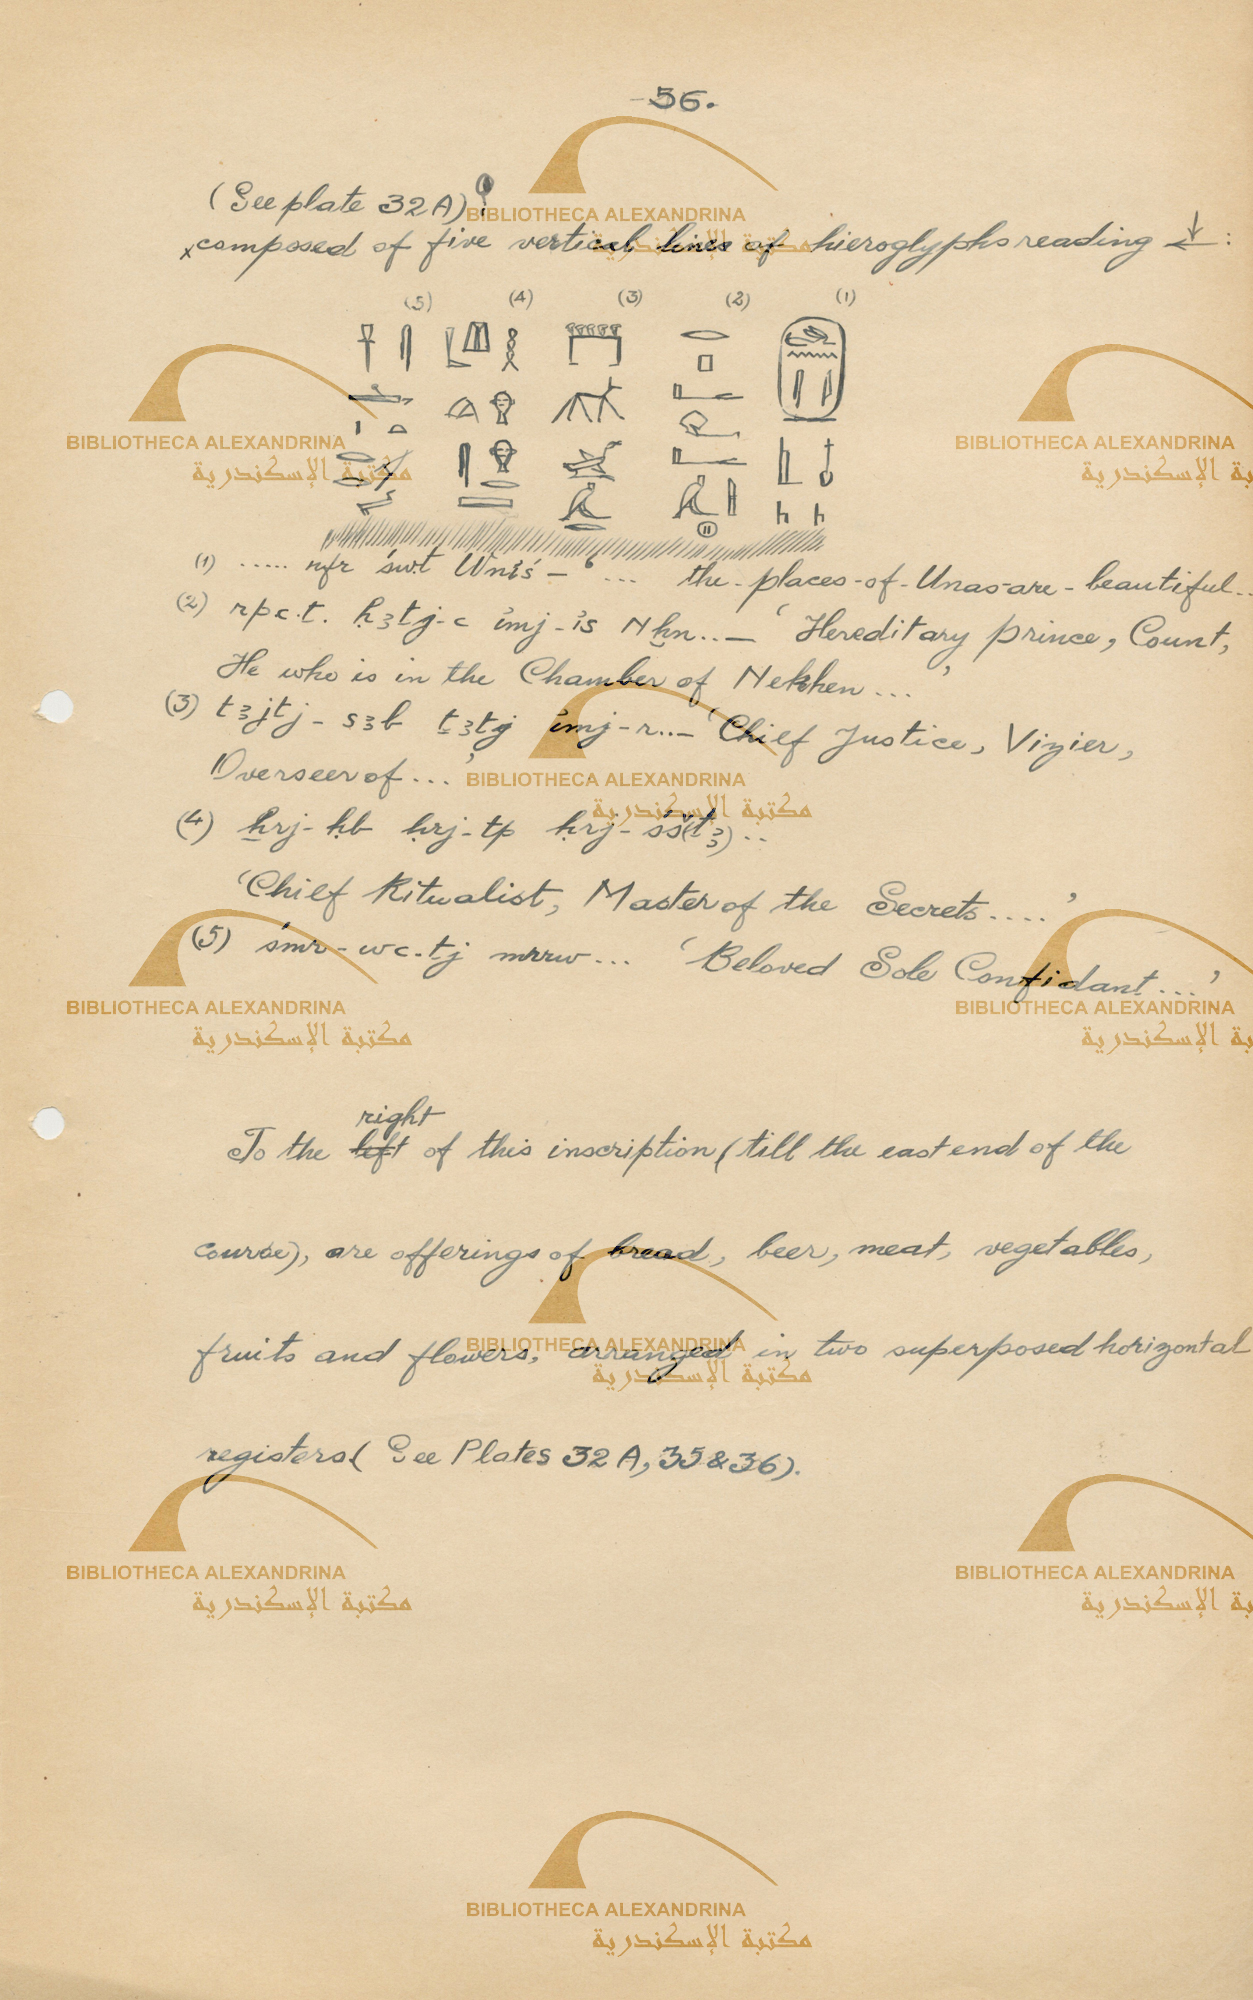 -56.
(See plate 32A)
x composed of five vertical lines of hieroglyphs reading ↓←:
(5) (4) (3) (2) (1)
(1) ..... nfr śwt Wnỉś – ‘... the-places-of-Unas-are-beautiful..
(2) rpc.t. ḥ3tj-c ỉmj-ỉs Nḫn..— ‘Hereditary prince, Count,
He who is in the Chamber of Nekhen...’
(3) t3jtj- s3b ṯ3tj ỉmj-r..– ‘Chief Justice, Vizier,
Overseer of ...’
(4) ẖrj-ḥb ḥrj-tp ḥrj-sš(t3)..
‘Chief Ritualist, Master of the Secrets....’
(5) śmr-wc.tj mrrw... ‘Beloved Sole Confidant...’
right
To the left of this inscription (till the east end of the
course), are offerings of bread, beer, meat, vegetables,
fruits and flowers, arranged in two superposed horizontal
registers (See Plates 32A, 35 & 36).
BIBLIOTHECA ALEXANDRINA
مكتبة الإسكندرية